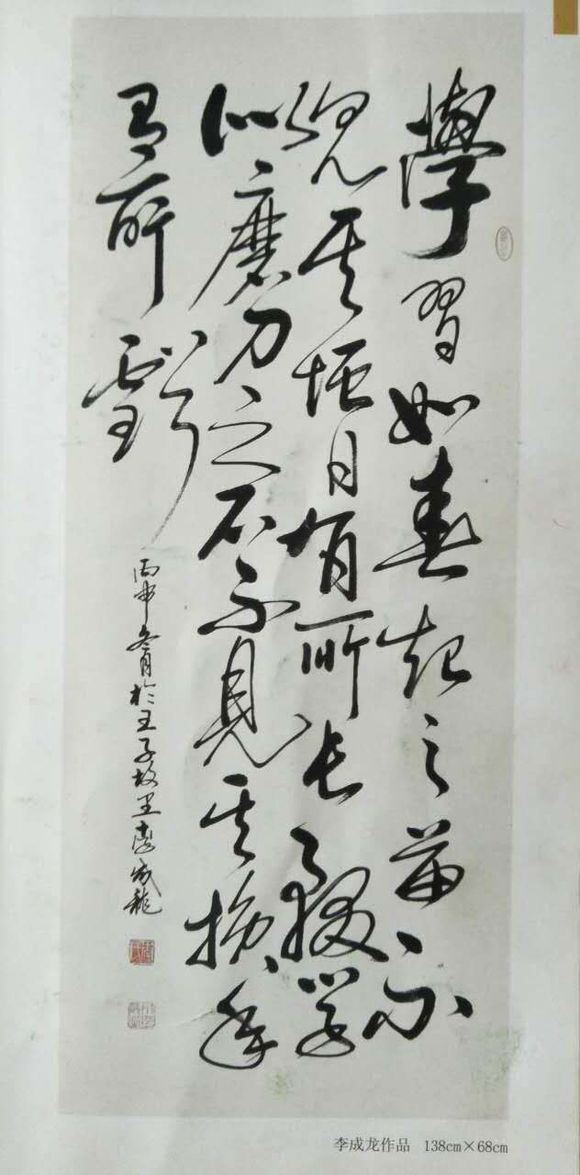 學習如春起之苗不
見其增日有所长辍學
似磨刀之石不見其损年
有所虧
丙申冬月於王子故里李成龍
李成龙作品 138cm×68cm